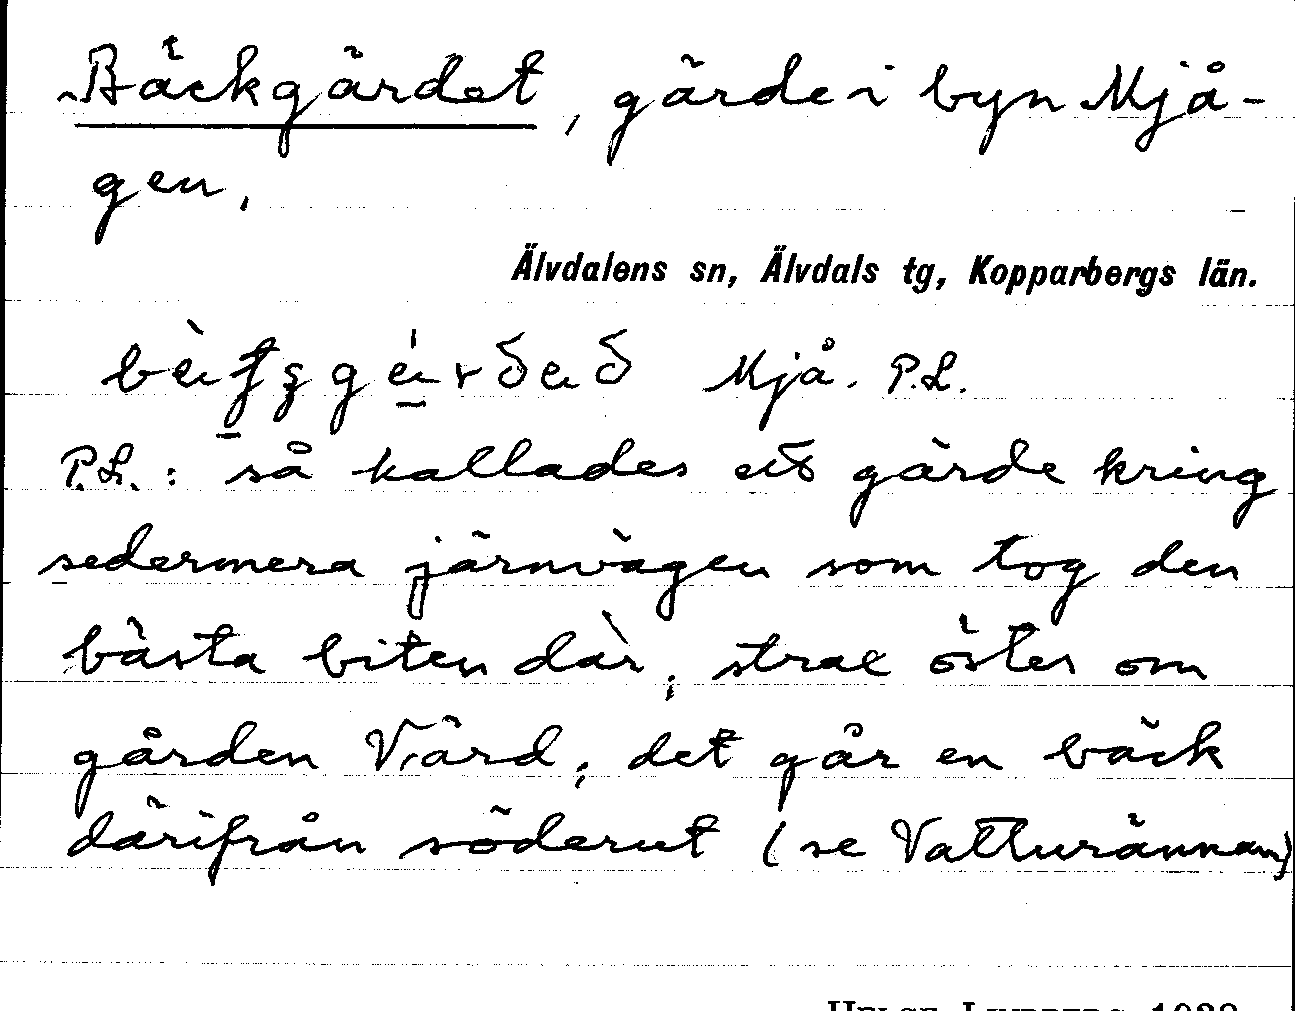 Bäckgärdet, gärde i byn Mjå-
gen.
Älvdalens sn, Älvdals tg, Kopparbergs län.
Mjå. P.L.
P.L.: så kallades ett gärde kring
sedermera järnvägen som tog den
bästa biten där; strax öster om
gården V. Ärd; det går en bäck
därifrån söderut (se Vatturännan)